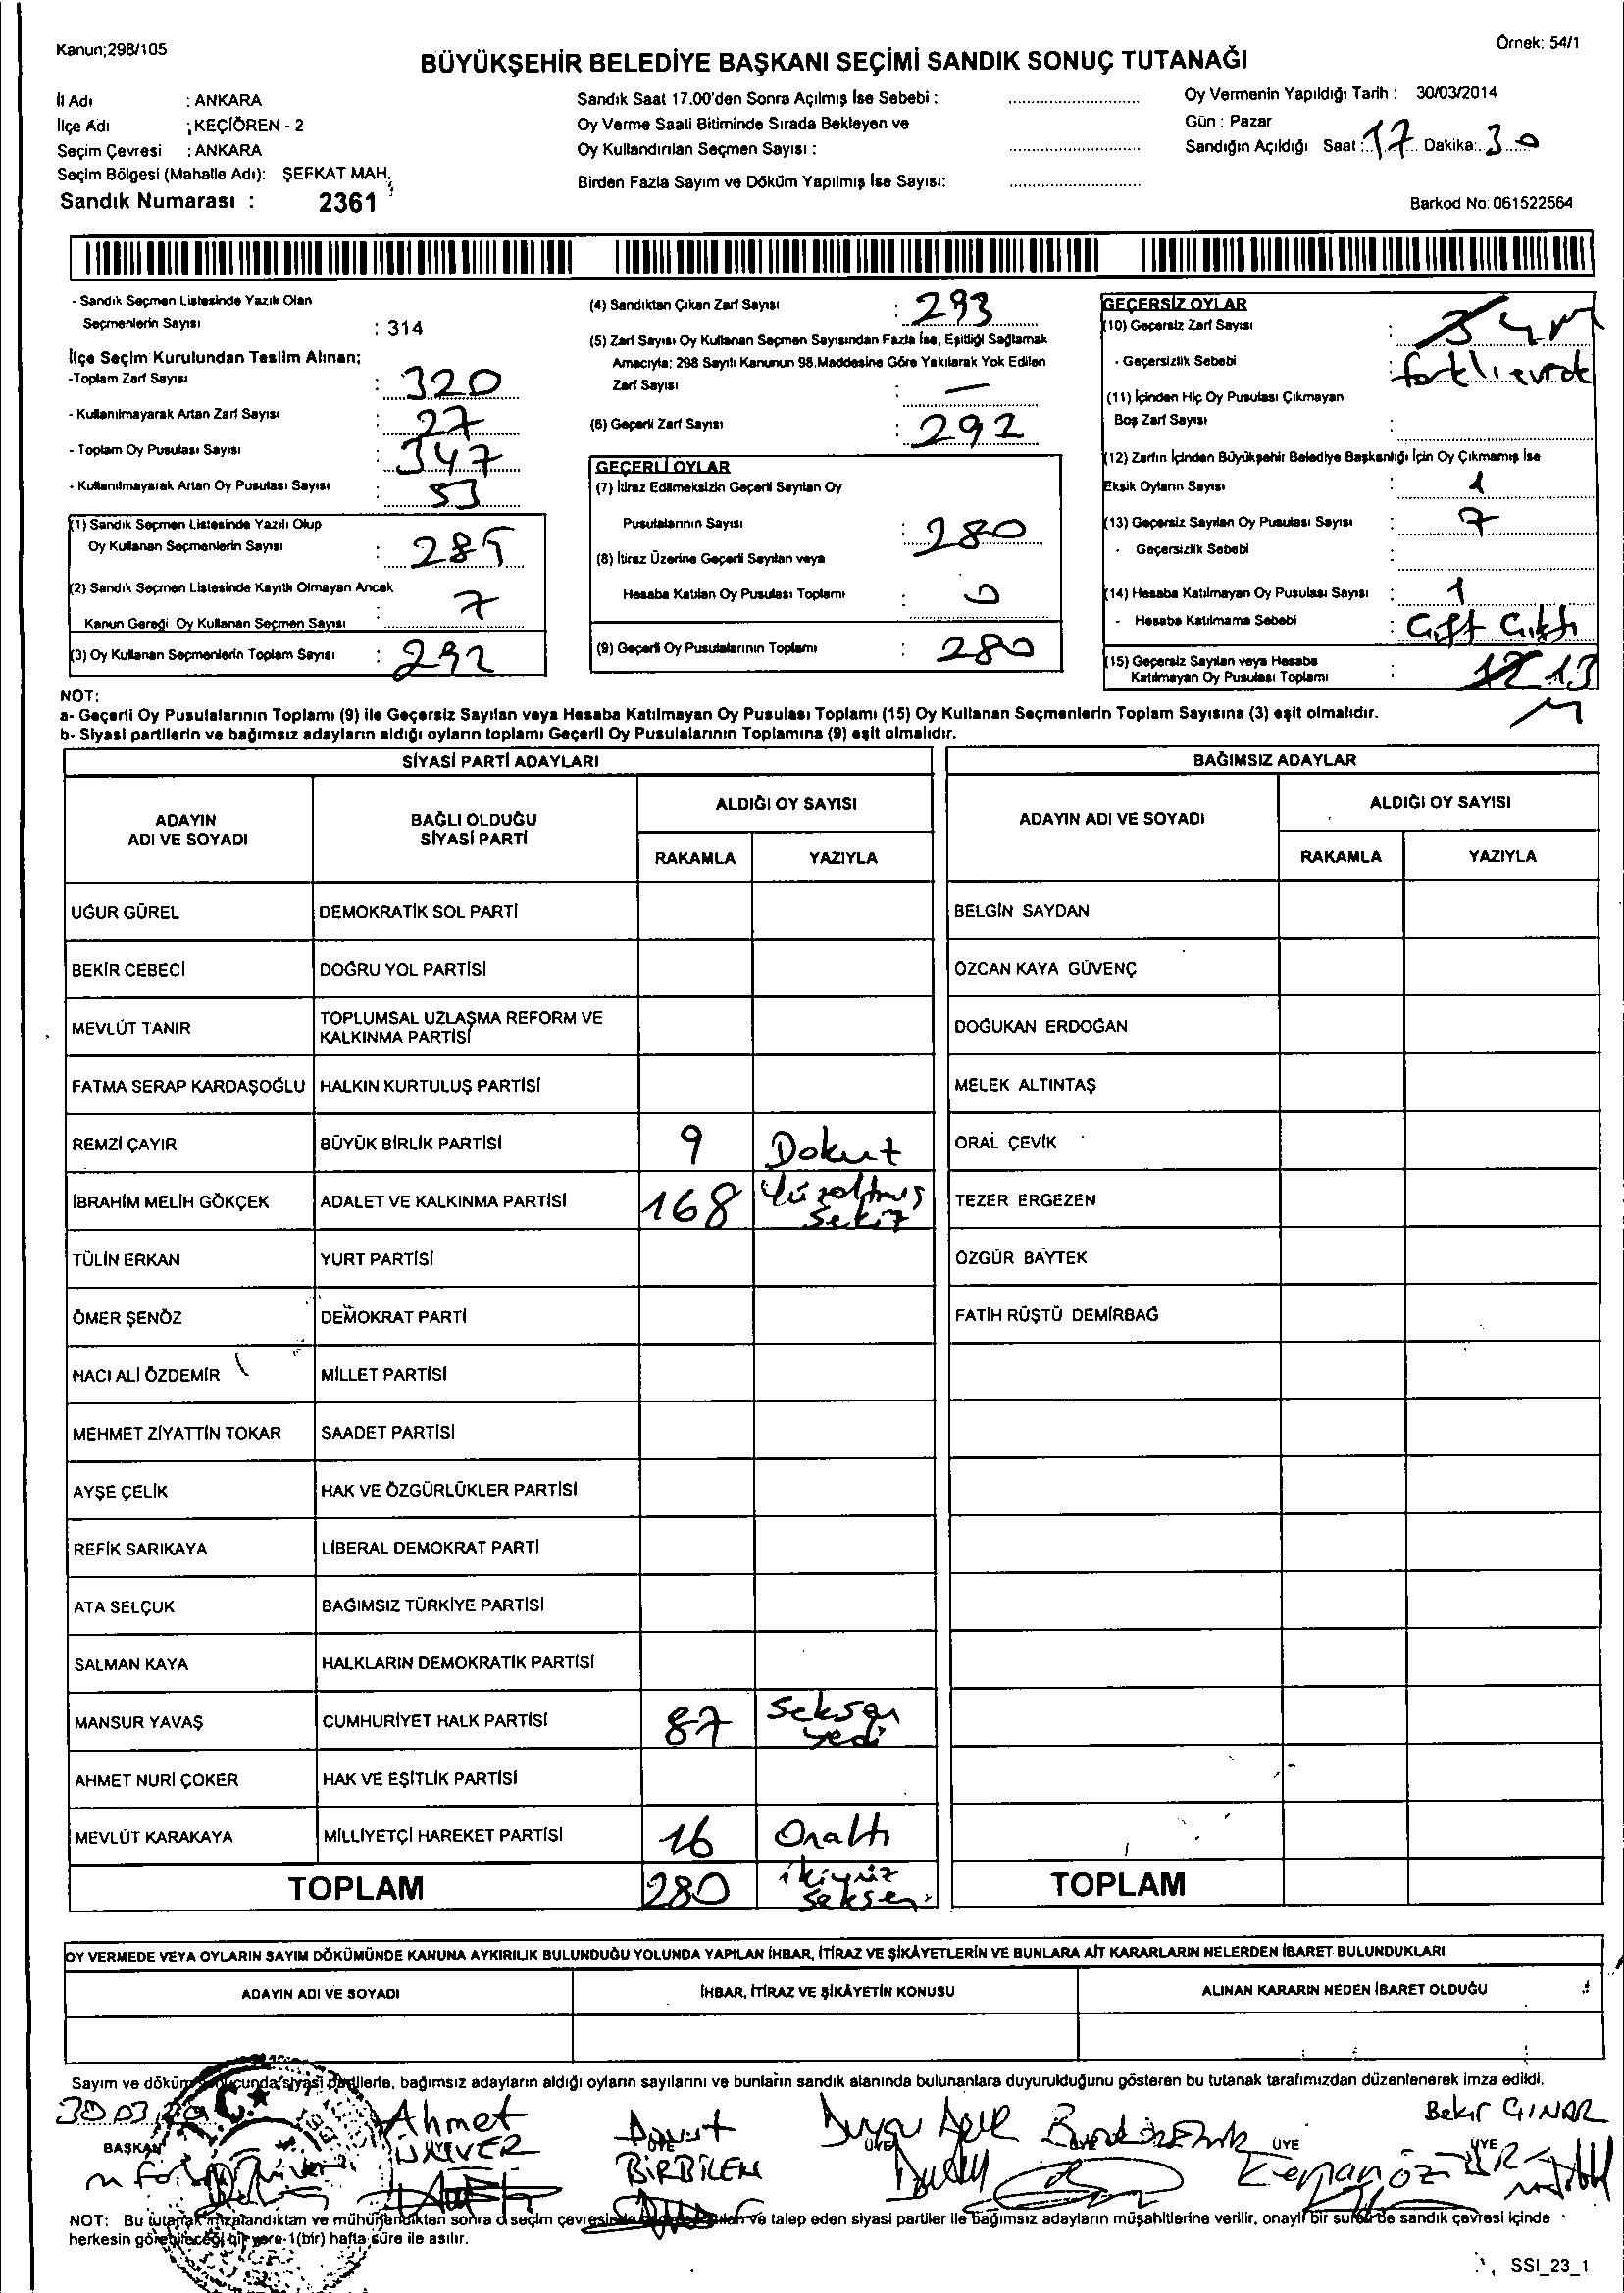 Kanun;298/105
Örnek: 54/1
BÜYÜKŞEHİR BELEDİYE BAŞKANI SEÇİMİ SANDIK SONUÇ TUTANAĞI
İl Adı : ANKARA
İlçe Adı : KEÇİÖREN - 2
Seçim Çevresi : ANKARA
Seçim Bölgesi (Mahalle Adı): ŞEFKAT MAH.
Sandık Numarası : 2361
Sandık Saat 17.00'den Sonra Açılmış İse Sebebi :
Oy Verme Saati Bitiminde Sırada Bekleyen ve
Oy Kullandırılan Seçmen Sayısı :
Birden Fazla Sayım ve Döküm Yapılmış İse Sayısı:
Oy Vermenin Yapıldığı Tarih : 30/03/2014
Gün : Pazar
Sandığın Açıldığı Saat : 17 Dakika: 30
Barkod No: 061522564
- Sandık Seçmen Listesinde Yazılı Olan
Seçmenlerin Sayısı : 314
İlçe Seçim Kurulundan Teslim Alınan;
-Toplam Zarf Sayısı : 320
- Kullanılmayarak Artan Zarf Sayısı : 27
- Toplam Oy Pusulası Sayısı : 347
- Kullanılmayarak Artan Oy Pusulası Sayısı : 53
(1) Sandık Seçmen Listesinde Yazılı Olup
Oy Kullanan Seçmenlerin Sayısı : 285
(2) Sandık Seçmen Listesinde Kayıtlı Olmayan Ancak
Kanun Gereği Oy Kullanan Seçmen Sayısı : 7
(3) Oy Kullanan Seçmenlerin Toplam Sayısı : 292
(4) Sandıktan Çıkan Zarf Sayısı : 293
(5) Zarf Sayısı Oy Kullanan Seçmen Sayısından Fazla İse, Eşitliği Sağlamak
Amacıyla; 298 Sayılı Kanunun 98.Maddesine Göre Yakılarak Yok Edilen
Zarf Sayısı : —
(6) Geçerli Zarf Sayısı : 292
GEÇERLİ OYLAR
(7) İtiraz Edilmeksizin Geçerli Sayılan Oy
Pusulalarının Sayısı : 280
(8) İtiraz Üzerine Geçerli Sayılan veya
Hesaba Katılan Oy Pusulası Toplamı : 0
(9) Geçerli Oy Pusulalarının Toplamı : 280
GEÇERSİZ OYLAR
(10) Geçersiz Zarf Sayısı :
- Geçersizlik Sebebi :
(11) İçinden Hiç Oy Pusulası Çıkmayan
Boş Zarf Sayısı :
(12) Zarfın İçinden Büyükşehir Belediye Başkanlığı İçin Oy Çıkmamış İse
Eksik Oyların Sayısı : 1
(13) Geçersiz Sayılan Oy Pusulası Sayısı : 7
- Geçersizlik Sebebi :
(14) Hesaba Katılmayan Oy Pusulası Sayısı : 1
- Hesaba Katılmama Sebebi : Çift Çıktı
(15) Geçersiz Sayılan veya Hesaba
Katılmayan Oy Pusulası Toplamı : 13
NOT:
a- Geçerli Oy Pusulalarının Toplamı (9) ile Geçersiz Sayılan veya Hesaba Katılmayan Oy Pusulası Toplamı (15) Oy Kullanan Seçmenlerin Toplam Sayısına (3) eşit olmalıdır.
b- Siyasi partilerin ve bağımsız adayların aldığı oyların toplamı Geçerli Oy Pusulalarının Toplamına (9) eşit olmalıdır.
SİYASİ PARTİ ADAYLARI
ADAYIN ADI VE SOYADI
BAĞLI OLDUĞU SİYASİ PARTİ
ALDIĞI OY SAYISI
RAKAMLA YAZIYLA
UĞUR GÜREL DEMOKRATİK SOL PARTİ
BEKİR CEBECİ DOĞRU YOL PARTİSİ
MEVLÜT TANIR TOPLUMSAL UZLAŞMA REFORM VE KALKINMA PARTİSİ
FATMA SERAP KARDAŞOĞLU HALKIN KURTULUŞ PARTİSİ
REMZİ ÇAYIR BÜYÜK BİRLİK PARTİSİ 9 Dokuz
İBRAHİM MELİH GÖKÇEK ADALET VE KALKINMA PARTİSİ 168 Yüzaltmış Sekiz
TÜLİN ERKAN YURT PARTİSİ
ÖMER ŞENÖZ DEMOKRAT PARTİ
HACI ALİ ÖZDEMİR MİLLET PARTİSİ
MEHMET ZİYATTİN TOKAR SAADET PARTİSİ
AYŞE ÇELİK HAK VE ÖZGÜRLÜKLER PARTİSİ
REFİK SARIKAYA LİBERAL DEMOKRAT PARTİ
ATA SELÇUK BAĞIMSIZ TÜRKİYE PARTİSİ
SALMAN KAYA HALKLARIN DEMOKRATİK PARTİSİ
MANSUR YAVAŞ CUMHURİYET HALK PARTİSİ 87 Seksen yedi
AHMET NURİ ÇOKER HAK VE EŞİTLİK PARTİSİ
MEVLÜT KARAKAYA MİLLİYETÇİ HAREKET PARTİSİ 16 Onaltı
TOPLAM 280 ikiyüz Seksen
BAĞIMSIZ ADAYLAR
ADAYIN ADI VE SOYADI
ALDIĞI OY SAYISI
RAKAMLA YAZIYLA
BELGİN SAYDAN
ÖZCAN KAYA GÜVENÇ
DOĞUKAN ERDOĞAN
MELEK ALTINTAŞ
ORAL ÇEVİK
TEZER ERGEZEN
ÖZGÜR BAYTEK
FATİH RÜŞTÜ DEMİRBAĞ
TOPLAM
OY VERMEDE VEYA OYLARIN SAYIM DÖKÜMÜNDE KANUNA AYKIRILIK BULUNDUĞU YOLUNDA YAPILAN İHBAR, İTİRAZ VE ŞİKÂYETLERİN VE BUNLARA AİT KARARLARIN NELERDEN İBARET BULUNDUKLARI
ADAYIN ADI VE SOYADI İHBAR, İTİRAZ VE ŞİKÂYETİN KONUSU ALINAN KARARIN NEDEN İBARET OLDUĞU
Sayım ve döküm sonucunda siyasi partilerle, bağımsız adayların aldığı oyların sayılarını ve bunların sandık alanında bulunanlara duyurulduğunu gösteren bu tutanak tarafımızdan düzenlenerek imza edildi.
BAŞKAN
Ahmet ÜNVER
ÜYE Davut BİRBİLEN
ÜYE
ÜYE
ÜYE Kenan ÖZTÜRK
ÜYE Bekir ÇINAR
NOT: Bu tutanak imzalandıktan ve mühürlendikten sonra seçim çevresinde ve talep eden siyasi partiler ile bağımsız adayların müşahitlerine verilir, onaylı bir sureti de sandık çevresi içinde
herkesin görebileceği bir yere 1(bir) hafta süre ile asılır.
SSI_23_1